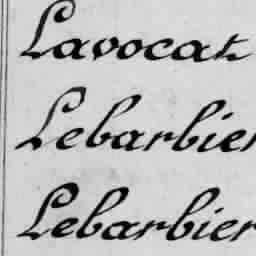 Lavocat
Lebarbier
Lebarbier